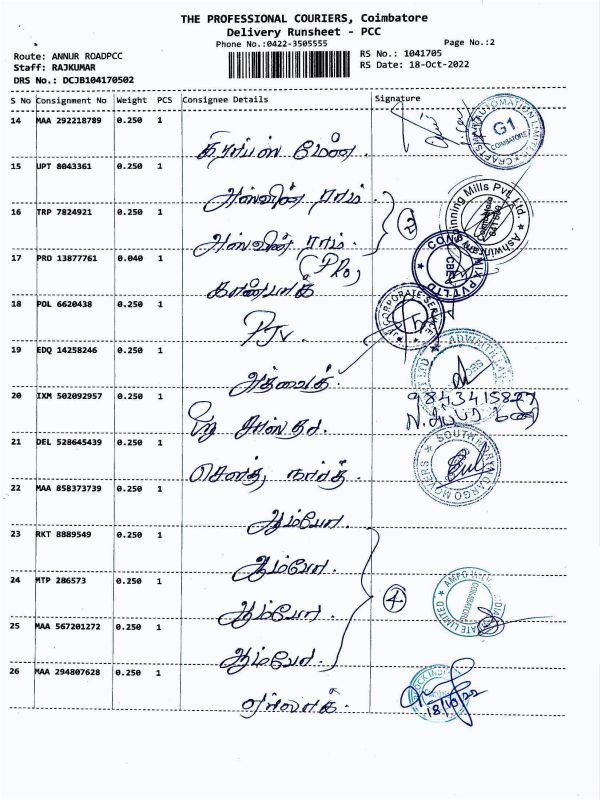 THE PROFESSIONAL COURIERS, Coimbatore
Delivery Runsheet - PCC
Phone No.:0422-3505555
Page No.:2
Route: ANNUR ROADPCC
RS No.: 1041705
Staff: RAJKUMAR
RS Date: 18-Oct-2022
DRS No.: DCJB104170502
S No Consignment No Weight PCS Consignee Details Signature
14 MAA 292218789 0.250 1
G1
COIMBATORE
15 UPT 8043361 0.250 1
அஸ்வின் ராம்
16 TRP 7824921 0.250 1
அஸ்வின் ராம்
2
17 PRO 13877761 0.040 1
(Pro)
18 POL 6620438 0.250 1
PJV
19 EDQ 14258246 0.250 1
அத்வைத்
20 IXM 502092957 0.250 1
9843415827
21 DEL 528645439 0.250 1
சௌத் நார்த்
22 MAA 858373739 0.250 1
ஆம்போ
23 RKT 8889549 0.250 1
ஆம்போ
24 MTP 286573 0.250 1
ஆம்போ
4
25 MAA 567201272 0.250 1
ஆம்போ
26 MAA 294807628 0.250 1
18/10/22